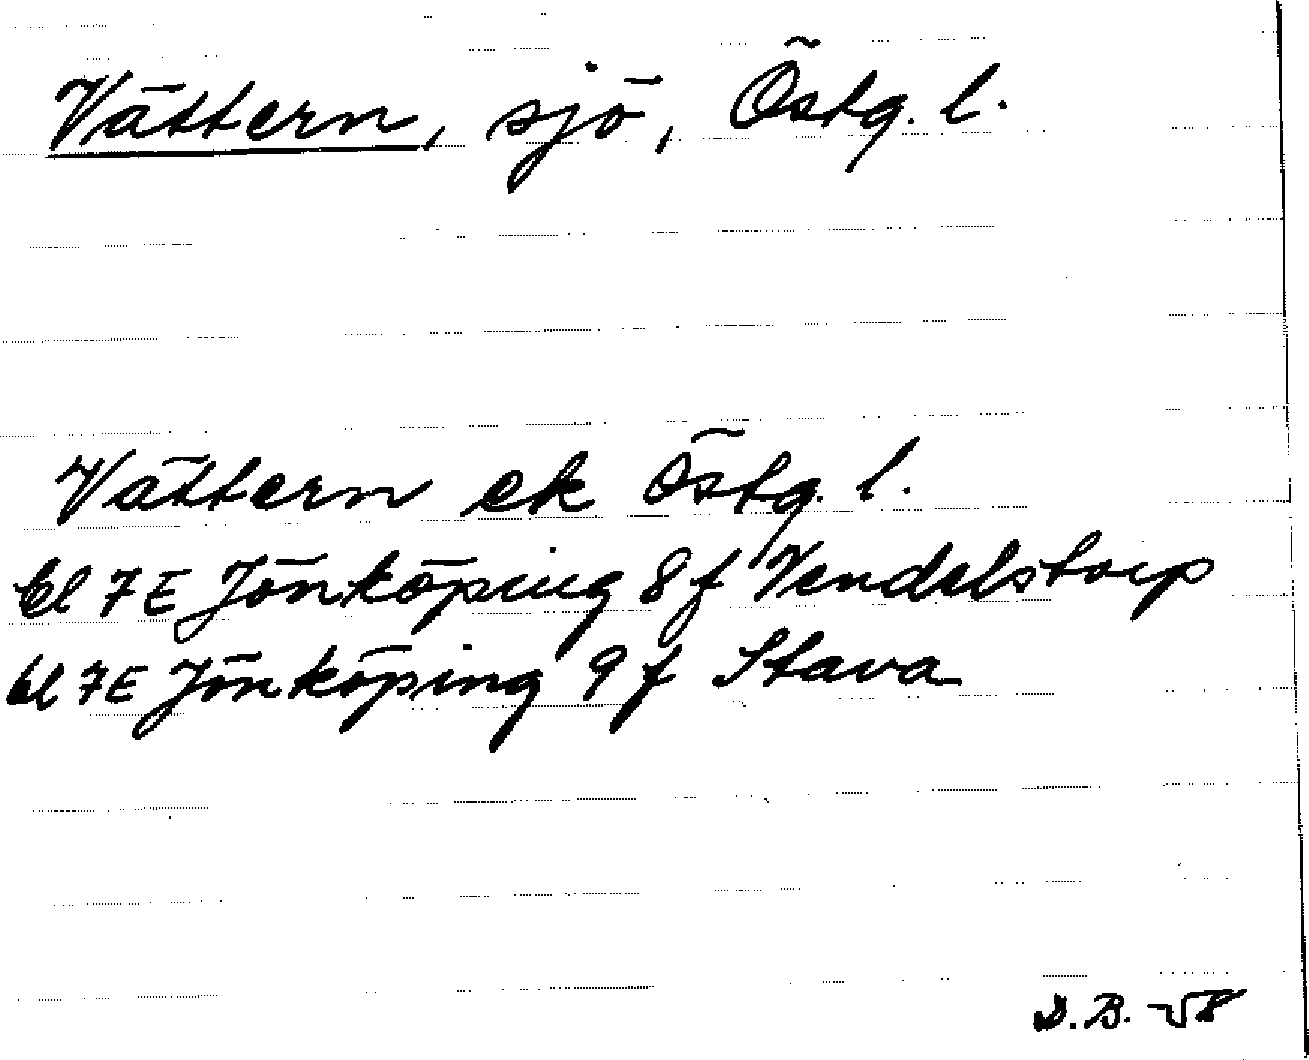 Vättern, sjö, Östg. l.
Vättern ek Östg. l.
bl 7E Jönköping 8f Vendelstorp
bl 7E Jönköping 9f Stava
D.B. -58